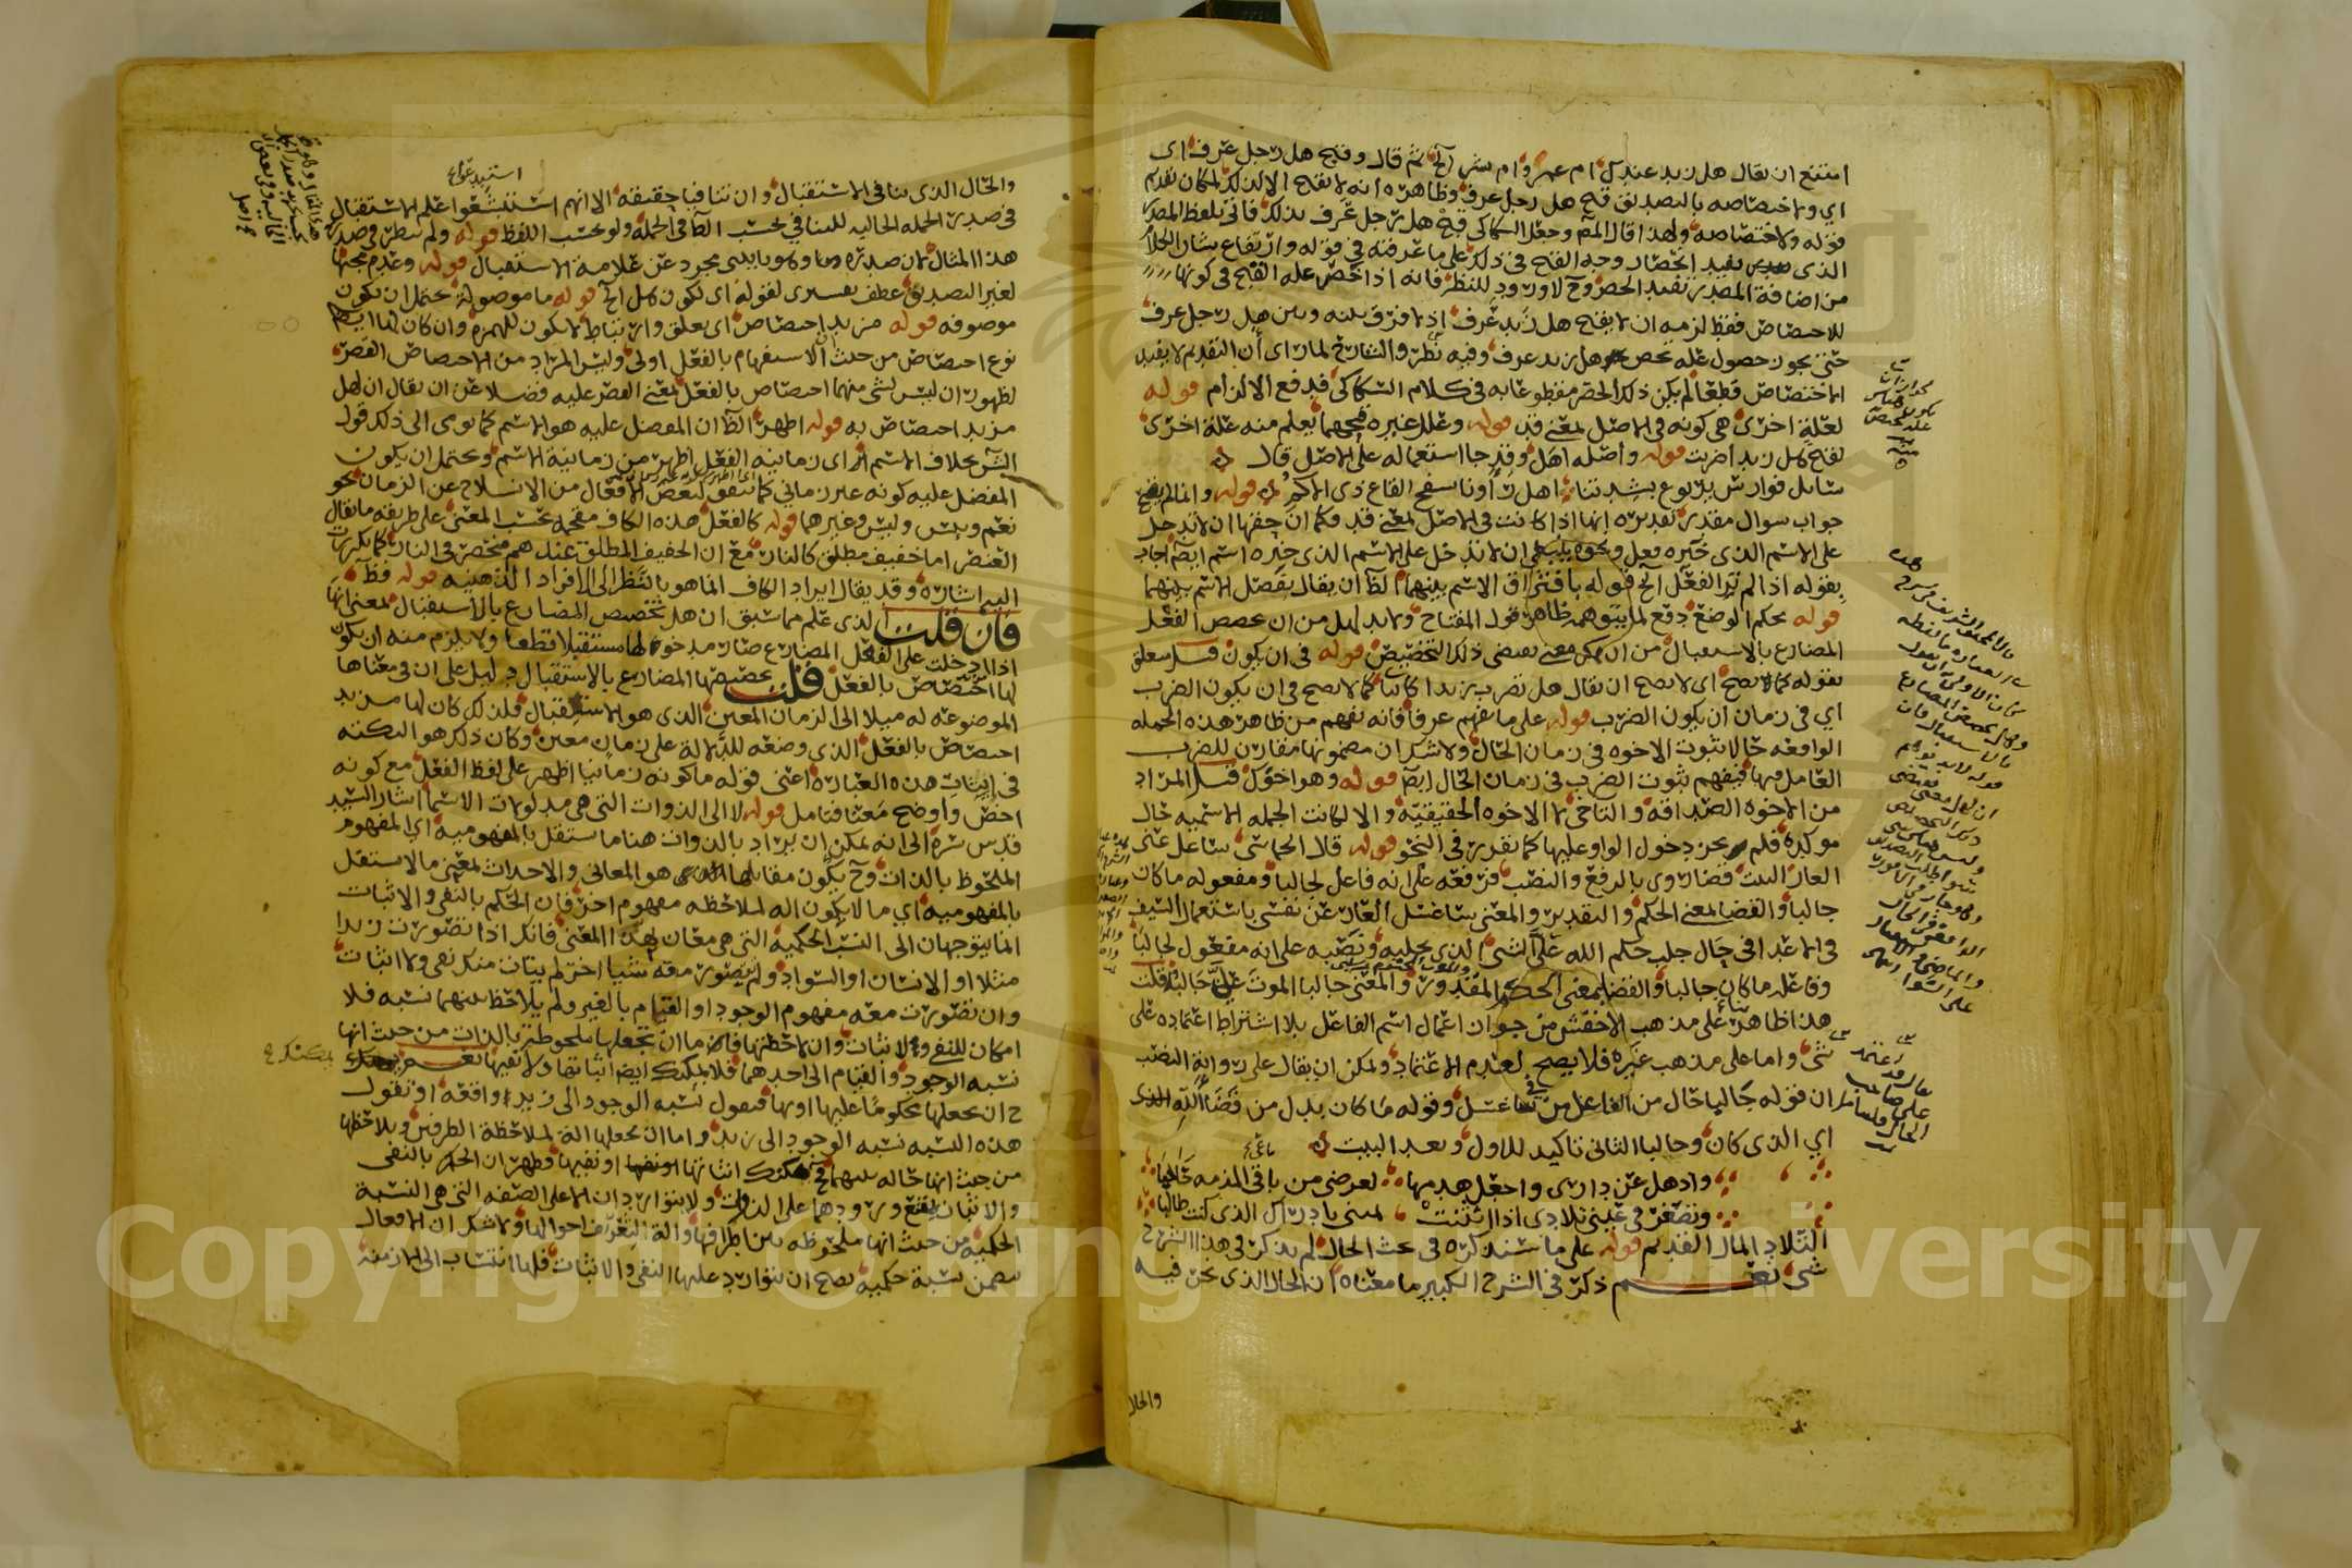 امتنع ان يقال هل زيد عندك ام عمرو ام بشر الخ ثم قال وقبح هل رجل عرف اى
اي ولاختصاصه بالتصديق قبح هل رجل عرف وظاهره انه لا يقبح الا لذلك لمكان تقديم
قوله ولاختصاصه ولهذا قال المص وجعل السكاكى قبح هل رجل عرف لذلك فاتى بلفظ المصدر
الذى يفيد انحصار وجه القبح فى ذلك على ما عرفته فى قوله وارتفاع شان الكلام
من اضافة المصدر تفيد الحصر وح لا ورود للنظر فانه اذا خص علة القبح فى كونها
للاختصاص فقط لزمه ان لا يقبح هل زيد عرف اذ لا فرق بينه وبين هل رجل عرف
حتى يجوز حصول علة تخص هل زيد عرف وفيه نظر والشارح لما راى ان التقديم لا يفيد
الاختصاص قطعا لم يكن ذلك الحصر مقطوعا به فى كلام السكاكى فدفع الالزام قوله
لعلة اخرى هى كونه فى الاصل بمعنى قد قوله وعلل غيره قبحهما يعلم منه علة اخرى
لقبح هل زيد اضربت قوله واصله اهل وقد جا استعماله على الاصل قال
سائل فوارس يربوع بشدتنا اهل راونا بسفح القاع ذى الاكم قوله وانما لم يقبح
جواب سوال مقدر تقديره انها اذا كانت فى الاصل بمعنى قد فكما ان حقها ان لا تدخل
على الاسم الذى خبره فعل ينبغى ان لا تدخل على الاسم الذى خبره اسم ايضا اجاب
بقوله اذا لم تر الفعل الخ قوله بافتراق الاسم بينهما الظ ان يقال بفصل الاسم بينهما
قوله بحكم الوضع دفع لما يتوهمه ظاهر قول المفتاح ولا بد لهل من ان يخصص الفعل
المضارع بالاستقبال من ان يكون معنى يقتضى ذلك التخصيص قوله فى ان يكون قيل متعلق
بقوله كما لا يصح اى لا يصح ان يقال هل تضرب زيدا كما لا يصح فى ان يكون الضرب
اي فى زمان ان يكون الضرب قوله على ما يفهم عرفا فانه يفهم من ظاهر هذه الجمله
الواقعه حالا ثبوت الاخوه فى زمان الحال ولا شك ان مضمونها مقارن للضرب
العامل فيها فيفهم ثبوت الضرب فى زمان الحال ايضا قوله وهو اخوك قيل المراد
من الاخوه الصداقه والتاخى لا الاخوه الحقيقيه والا لكانت الجمله الاسميه حال
موكده فلم يجز دخول الواو عليها كما تقدر فى النحو قوله قال الحماسى ساغسل عنى
العار البيت قضا روى بالرفع والنصب فرفعه على انه فاعل لجالبا ومفعوله ما كان
جالبا والقضا بمعنى الحكم والتقدير والمعنى ساغسل العار عن نفسى باستعمال السيف
فى الاعدا فى حال جلب حكم الله على الشى الذى يجلبه ونصبه على انه مفعول لجالبا
وفاعله ما كان جالبا والقضا بمعنى الحكم المقدور والمعنى جالبا الموت على جالبه قلت
هذا ظاهر على مذهب الاخفش من جواز اعمال اسم الفاعل بلا اشتراط اعتماده على
شى واما على مذهب غيره فلا يصح لعدم الاعتماد ويمكن ان يقال على رواية النصب
ان قوله جالبا حال من الفاعل فى ساغسل وقوله ما كان بدل من قضا الله الذى
اي الذى كان وجالبا الثانى تاكيد للاول وبعد البيت
واذهل عن دارى واجعل هدمها لعرضى من باقى المذمه حاجبا
وتصغر فى عينى تلادى اذا انثنت يمينى بادراك الذى كنت طالبا
التلاد المال القديم قوله على ما سنذكره فى بحث الحال لم يذكر فى هذا الشرح
شى نعم ذكر فى الشرح الكبير ما معناه ان الحال الذى نحن فيه
والحال
والحال الذى ينافى الاستقبال وان تنافيا حقيقه الا انهم استبشعوا علم الاستقبال
فى صدر الجمله الحاليه للتنافى بحسب الظ فى الجمله ولو بحسب اللفظ قوله ولم ينظر فى صدر
هذا المثال لان صدره مجرد عن علامة الاستقبال قوله وعدم مجيها
لغير التصديق عطف تفسيرى لقوله اى لكون هل الخ قوله ما موصولة يحتمل ان يكون
موصوفه قوله مزيد اختصاص اى تعلق وارتباط لا يكون للهمزه وان كان لها ايضا
نوع اختصاص من حيث ان الاستفهام بالفعل اولى وليس المراد من الاختصاص القصر
لظهور ان ليس لشى منهما اختصاص بالفعل بمعنى القصر عليه فضلا عن ان يقال ان لهل
مزيد اختصاص به قوله اظهر الظ ان المفضل عليه هو الاسم كما يومى الى ذلك قول
الش بخلاف الاسم اى زمانية الفعل اظهر من زمانية الاسم ويحتمل ان يكون
المفضل عليه كونه غير زمانى كما يتفق لبعض الافعال من الانسلاخ عن الزمان نحو
نعم وبئس وليس وغيرهما قوله كالفعل هذه الكاف مقحمه بحسب المعنى على طريقه ما يقال
العنصر اما خفيف مطلق كالنار مع ان الخفيف المطلق عندهم منحصر فى النار كما تكررت
اليه اشاره وقد يقال ايراد الكاف انما هو بالنظر الى الافراد الذهنيه قوله فظ
فان قلت الذى علم مما سبق ان هل تخصص المضارع بالاستقبال بمعنى انها
اذا دخلت على الفعل المضارع صار مدخولها مستقبلا قطعا ولا يلزم منه ان يكون
لها اختصاص بالفعل قلت تخصيصها المضارع بالاستقبال دليل على ان فى معناها
الموضوعه له ميلا الى الزمان المعين الذى هو الاستقبال فلذلك كان لها مزيد
اختصاص بالفعل الذى وضعه للدلالة على زمان معين وكان ذلك هو النكته
فى اثبات هذه العباره اعنى قوله ما كونه زمانيا اظهر على لفظ الفعل مع كونه
اخصر واوضح معنا فتامل قوله لا الى الذوات التى هى مدلولات الاسما اشار السيد
قدس سره الى انه يمكن ان يراد بالذوات هنا ما استقل بالمفهوميه اي المفهوم
الملحوظ بالذات وح يكون مقابلها هو المعانى والاحداث بمعنى ما لا يستقل
بالمفهوميه اي ما لا يكون اله لملاحظه مفهوم اخر فان الحكم بالنفى والاثبات
انما يتوجهان الى النسب الحكميه التى هى معان بهذا المعنى فانك اذا تصورت زيدا
مثلا او الانسان او السواد ولم تتصور معه شيا اخر لم يتات منك نفى ولا اثبات
وان تصورت معه مفهوم الوجود او القيام بالغير ولم يلاحظ بينهما نسبه فلا
امكان للنفى والاثبات وان لاحظتها فاما ان تجعلها ملحوظه بالذات من حيث انها
نسبه الوجود والقيام الى احدهما فلا يمكنك ايضا اثباتها ولا نفيها نعم يمكنك
ان تجعلها محكوما عليها او بها فتقول نسبه الوجود الى زيد واقعه او تقول
هذه النسبه نسبه الوجود الى زيد واما ان تجعلها الة لملاحظة الطرفين وتلاحظها
من حيث انها حاله بينهما فح يمكنك اثباتها او نفيها فظهر ان الحكم بالنفى
والاثبات يمتنع ورودهما على الذوات ولا يتواردان الا على الصفه التى هى النسبة
الحكميه من حيث انها ملحوظه بين اطرافها والة لتعرف احوالها ولا شك ان الافعال
تتضمن نسبة حكميه يصح ان يتوارد عليها النفى والاثبات فلها انتساب الى الازمنه
Copyright © King Saud University